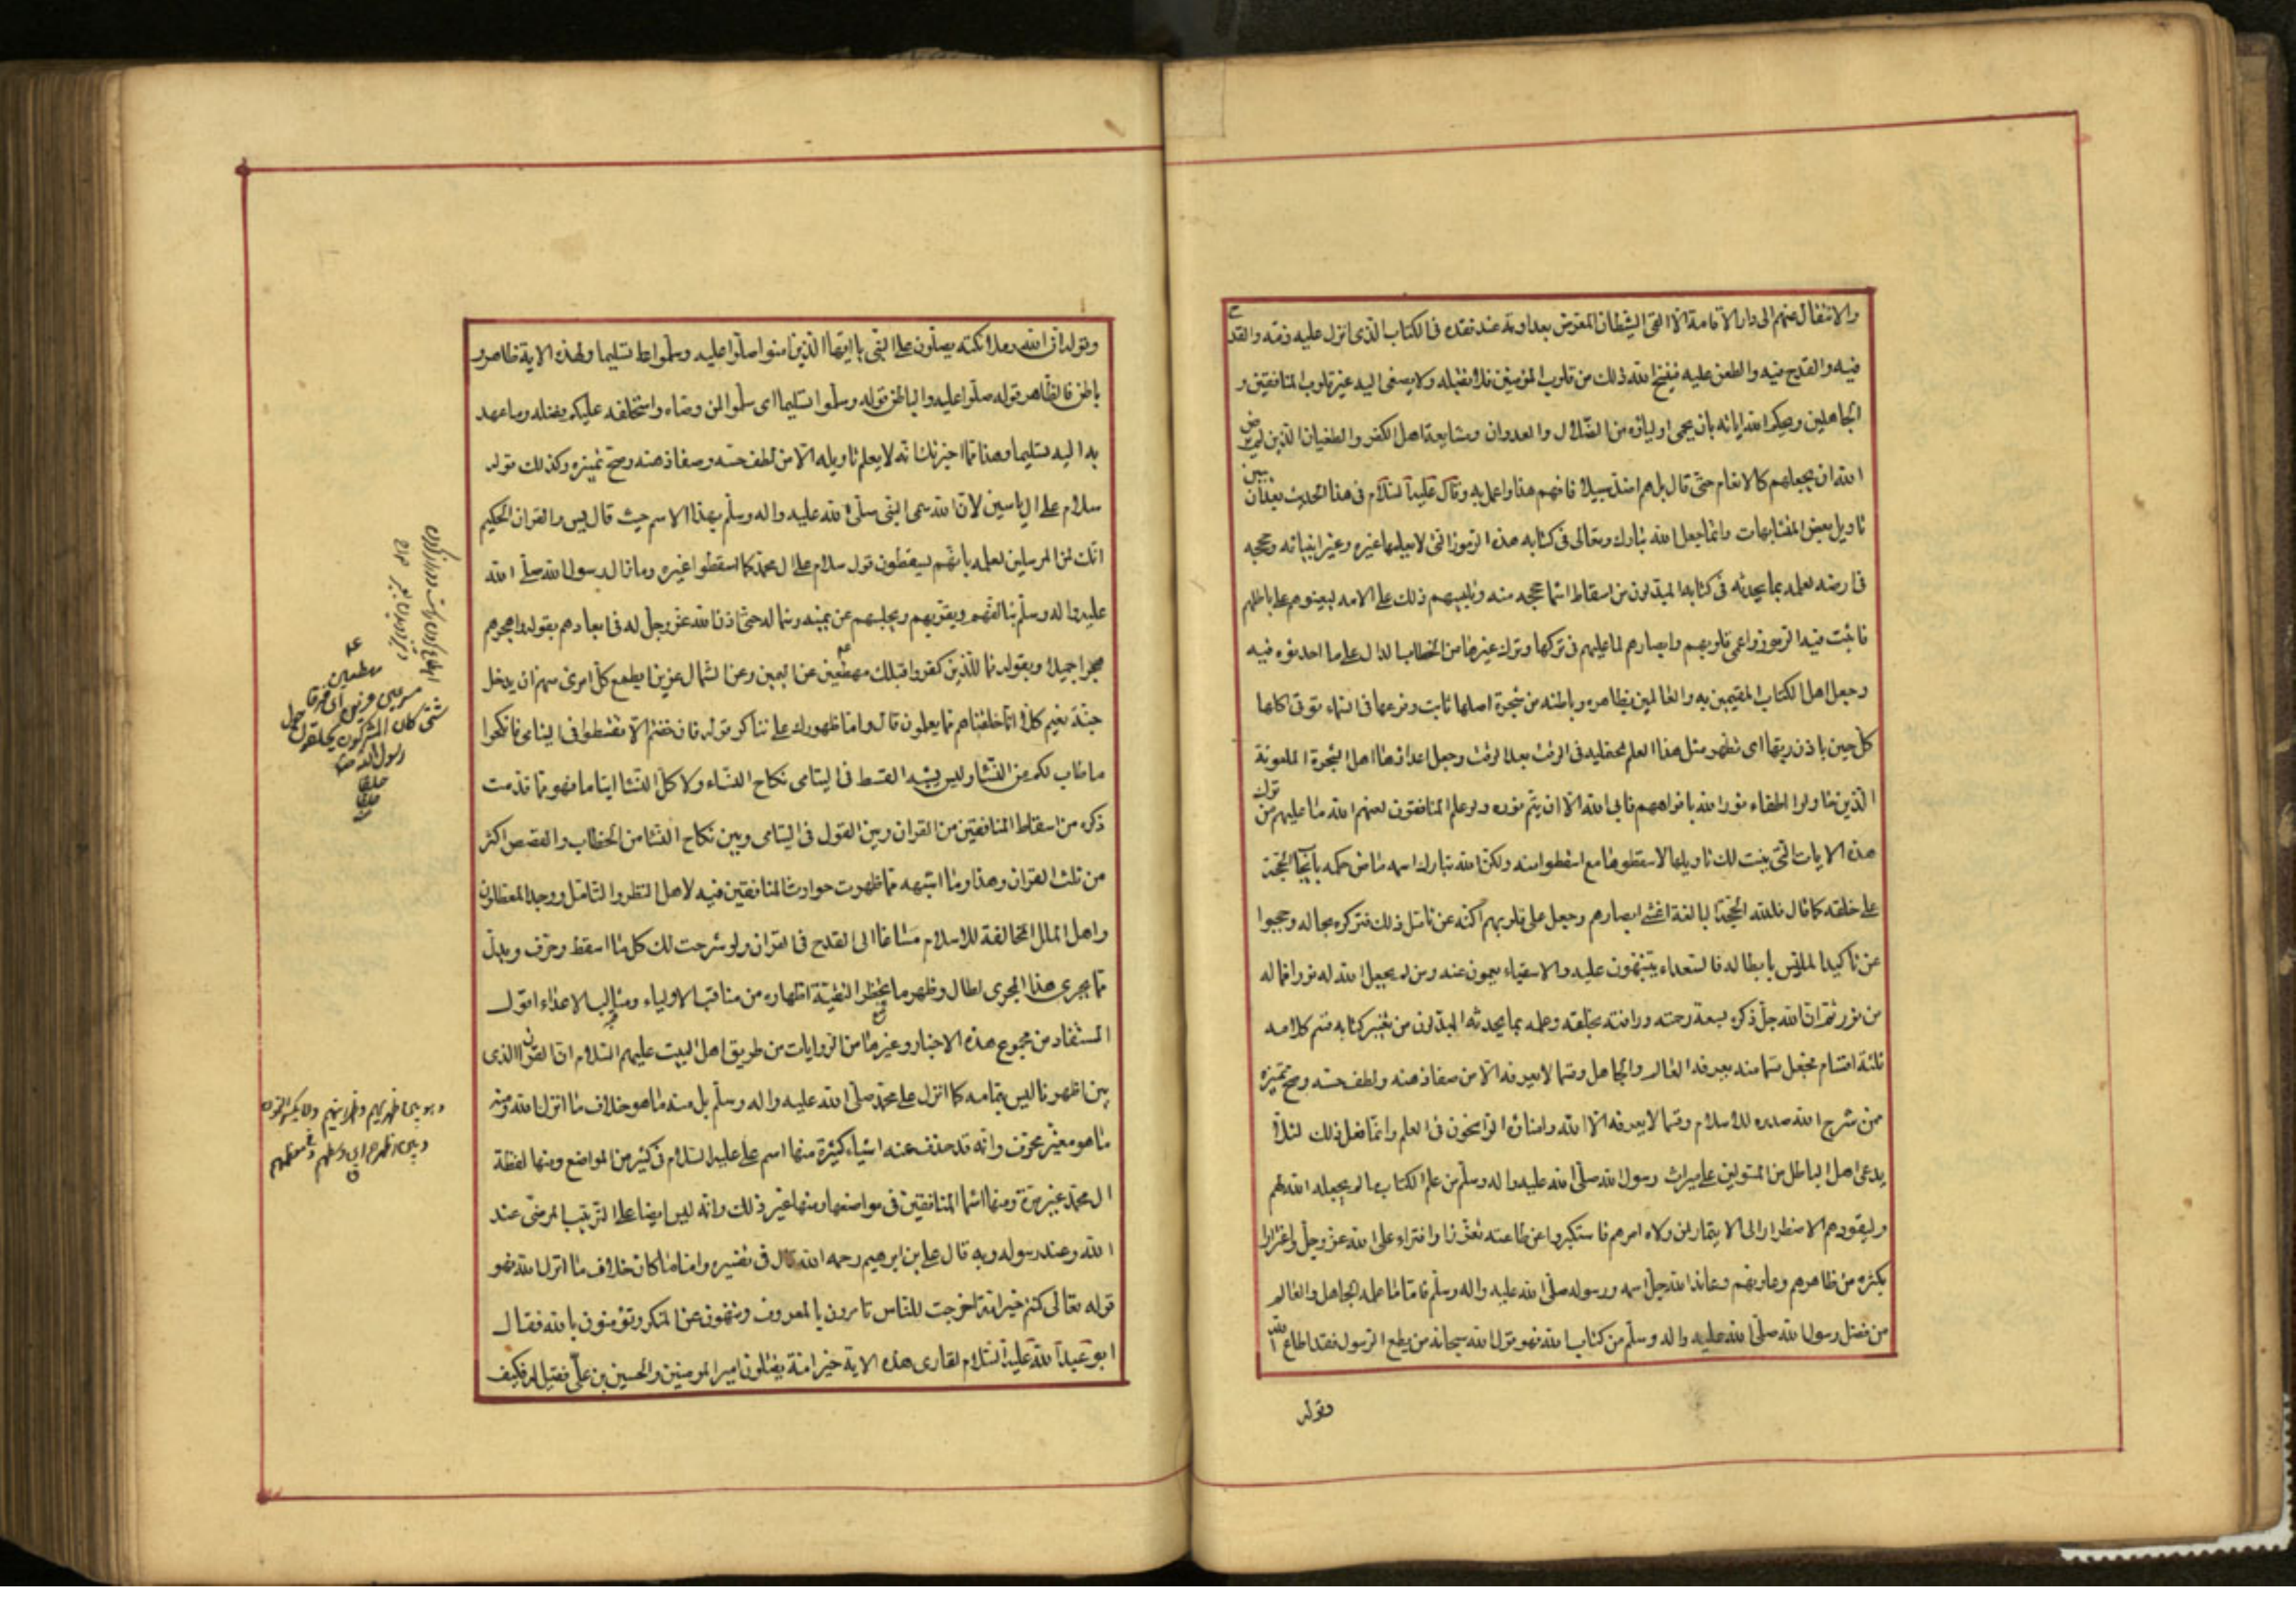 والانتقال عنهم الى دار الاقامة الا القى الشيطان المعرض بعداوته عند فقده فى الكتاب الذى انزل عليه ذمه والقدح
فيه والقدح فيه والطعن عليه فينسخ الله ذلك من قلوب المؤمنين فلا تقبله ولا يصغى اليه غير قلوب المنافقين و
الجاهلين ويحكم الله اياته بان يحمى اولياؤه من الضلال والعدوان ومشايعة اهل الكفر والطغيان الذين لم يرض
الله ان يجعلهم كالانعام حتى قال بل هم اضل سبيلا فافهم هذا واعمل به وقال عليه السلام فى هذا الحديث بعد ان بين
تاويل بعض المتشابهات وانما جعل الله تبارك وتعالى فى كتابه هذه الرموز التى لا يعلمها غيره وغير انبيائه وحججه
فى ارضه لعلمه بما يحدثه فى كتابه المبدلون من اسقاط اسماء حججه منه وتلبيسهم ذلك على الامه ليعينوهم على باطلهم
فاثبت فيه الرموز واعمى قلوبهم وابصارهم لما عليهم فى تركها وترك غيرها من الخطاب الدال على ما احدثوه فيه
وجعل اهل الكتاب المقيمين به والعالمين بظاهره وباطنه من شجرة اصلها ثابت وفرعها فى السماء تؤتى اكلها
كل حين باذن ربها اى تظهر مثل هذا العلم لمحتمليه فى الوقت بعد الوقت وجعل اعداءها اهل الشجرة الملعونة
الذين حاولوا اطفاء نور الله بافواههم فابى الله الا ان يتم نوره ولو علم المنافقون لعنهم الله ما عليهم من ترك
هذه الايات التى بينت لك تاويلها لاسقطوها مع اسقطوا منه ولكن الله تبارك اسمه ماض حكمه بايجاب الحجة
على خلقه كما قال فلله الحجة البالغة اغشى ابصارهم وجعل على قلوبهم اكنة عن تامل ذلك فتركوه بحاله وحجبوا
عن تاكيد الملبس بابطاله فالسعداء يتنبهون عليه والاشقياء يعمون عنه ومن لم يجعل الله له نورا فما له
من نور ثم ان الله جل ذكره بسعة رحمته ورافته بخلقه وعلمه بما يحدثه المبدلون من تغيير كتابه قسم كلامه
ثلثة اقسام فجعل قسما منه يعرفه العالم والجاهل وقسما لا يعرفه الا من صفا ذهنه ولطف حسه وصح تميزه
ممن شرح الله صدره للاسلام وقسما لا يعرفه الا الله وامناؤه الراسخون فى العلم وانما فعل ذلك لئلا
يدعى اهل الباطل من المستولين على ميراث رسول الله صلى الله عليه واله وسلم من علم الكتاب ما لم يجعله الله لهم
وليقودهم الاضطرار الى الايتمار لمن ولاه امرهم فاستكبروا عن طاعته تعززا وافتراء على الله عز وجل واغترارا
بكثرة من ظاهرهم وعاونهم وعاند الله جل اسمه ورسوله صلى الله عليه واله وسلم فاما ما علمه الجاهل والعالم
من فضل رسول الله صلى الله عليه واله وسلم من كتاب الله فهو قول الله سبحانه من يطع الرسول فقد اطاع الله
وقوله
وقوله ان الله وملائكته يصلون على النبى يا ايها الذين امنوا صلوا عليه وسلموا تسليما ولهذه الاية ظاهر و
باطن فالظاهر قوله صلوا عليه والباطن قوله وسلموا تسليما اى سلموا لمن وصاه واستخلفه عليكم بفضله وما عهد
به اليه تسليما وهذا مما اخبرتك انه لا يعلم تاويله الا من لطف حسه وصفا ذهنه وصح تميزه وكذلك قوله
سلام على ال ياسين لان الله سمى النبى صلى الله عليه واله وسلم بهذا الاسم حيث قال يس والقران الحكيم
انك لمن المرسلين لعلمه بانهم يسقطون قول سلام على ال محمد كما اسقطوا غيره وما زال رسول الله صلى الله
عليه واله وسلم يتالفهم ويقربهم ويجلسهم عن يمينه وشماله حتى اذن الله عز وجل له فى ابعادهم بقوله واهجرهم
هجرا جميلا وبقوله فما للذين كفروا قبلك مهطعين عن اليمين وعن الشمال عزين ايطمع كل امرئ منهم ان يدخل
جنة نعيم كلا انا خلقناهم مما يعلمون قال واما ظهورك على تناكر قوله فان خفتم الا تقسطوا فى اليتامى فانكحوا
ما طاب لكم من النساء وليس يشبه القسط فى اليتامى نكاح النساء ولا كل النساء ايتاما فهو مما قدمت
ذكره من اسقاط المنافقين من القران وبين القول فى اليتامى وبين نكاح النساء من الخطاب والقصص اكثر
من ثلث القران وهذا وما اشبهه مما ظهرت حوادث المنافقين فيه لاهل النظر والتامل ووجد المعطلون
واهل الملل المخالفة للاسلام مساغا الى القدح فى القران ولو شرحت لك كل ما اسقط وحرف وبدل
مما يجرى هذا المجرى لطال وظهر ما يحظر التقية اظهاره من مناقب الاولياء ومثالب الاعداء اقول
المستفاد من مجموع هذه الاخبار وغيرها من الروايات من طريق اهل البيت عليهم السلام ان القران الذى
بين اظهرنا ليس بتمامه كما انزل على محمد صلى الله عليه واله وسلم بل منه ما هو خلاف ما انزل الله ومنه
ما هو مغير محرف وانه قد حذف عنه اشياء كثيرة منها اسم على عليه السلام فى كثير من المواضع ومنها لفظة
ال محمد غير مرة ومنها اسماء المنافقين فى مواضعها ومنها غير ذلك وانه ليس ايضا على الترتيب المرضى عند
الله وعند رسوله وبه قال على بن ابرهيم رحمه الله قال فى تفسيره واما ما كان خلاف ما انزل الله فهو
قوله تعالى كنتم خير امة اخرجت للناس تامرون بالمعروف وتنهون عن المنكر وتؤمنون بالله فقال
ابو عبد الله عليه السلام لقارى هذه الاية خير امة يقتلون امير المومنين والحسين بن على فقيل له فكيف
مهطعين
مسرعين عزين اى فرقا
شتى كان المشركون يحلقون حول
رسول الله
حلقا
حلقا